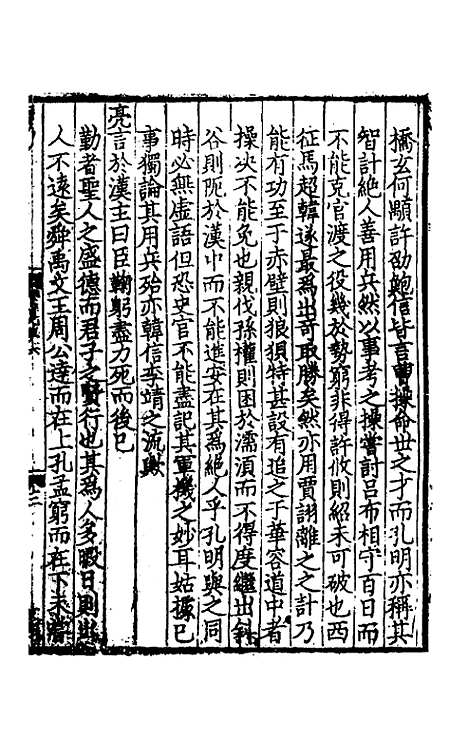 橋玄何顒許劭鮑信皆言曹操命世之才而孔明亦稱其
智計絕人善用兵然以事考之操嘗討吕布相守百日而
不能克官渡之役幾於勢窮非得許攸則紹未可破也西
征馬超韓遂最爲出奇取勝矣然亦用賈詡離之之計乃
能有功至于赤壁則狼狽特甚設有追之于華容道中者
操决不能免也親伐孫權則困於濡須而不得度繼出斜
谷則阨於漢中而不能進安在其爲絕人乎孔明與之同
時必無虛語但恐史官不能盡記其軍機之妙耳姑據已
事獨論其用兵殆亦韓信李靖之流歟
亮言於漢主曰臣鞠躬盡力死而後已
勤者聖人之盛德而君子之賢行也其爲人多暇日則出
人不遠矣舜禹文王周公達而在上孔孟窮而在下未嘗